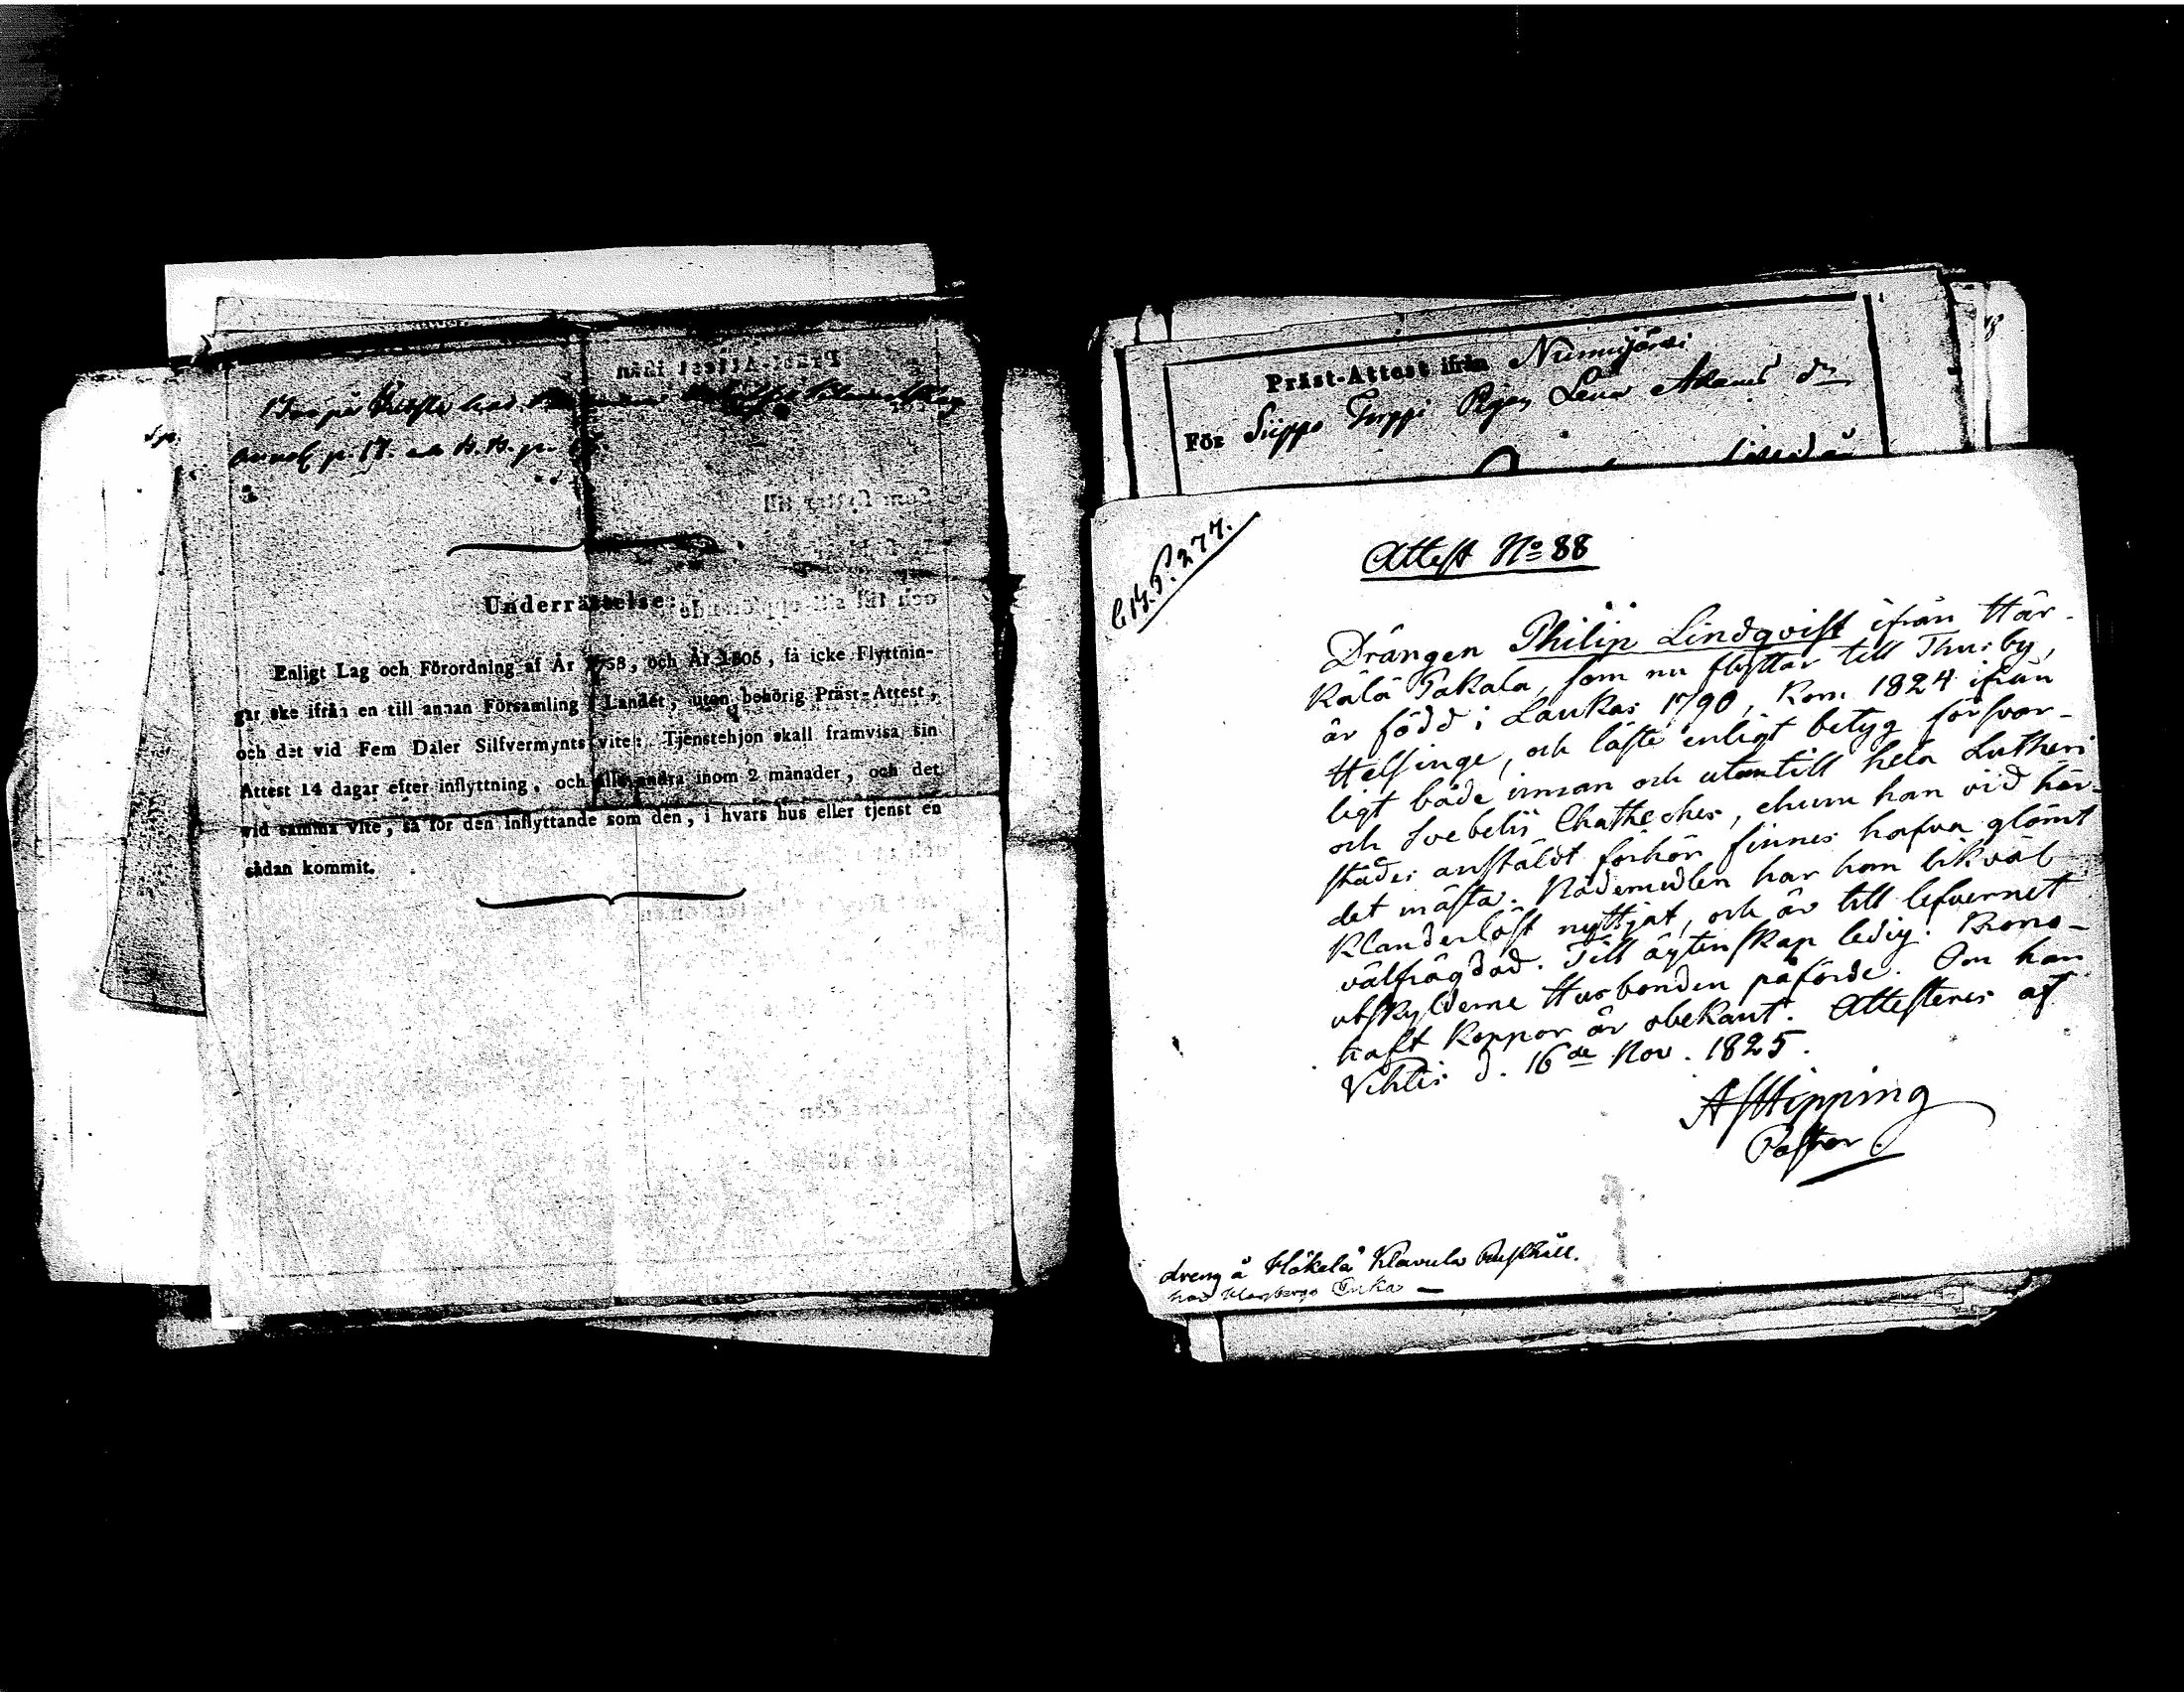 annos p. 17.
Underrättelse:
Enligt Lag och Förordning af År 1758, och År 1806, få icke Flyttnin-
gar ske ifrån en till annan Församling i Landet, utan behörig Präst-Attest,
och det vid Fem Daler Silfvermynts vite: Tjenstehjon skall framvisa sin
Attest 14 dagar efter inflyttning, och alla andra inom 2 månader, och det
vid samma vite, så för den inflyttande som den, i hvars hus eller tjenst en
sådan kommit.
Präst-Attest ifrån Nurmijärvi
För Seppo Torppi Pigan Lena Adams dr
Attest No 88
Drängen Philip Lindqvist ifrån Här-
kälä Takala, som nu flyttar till Thusby,
är född i Laukas 1790, kom 1824 ifrån
Helsinge, och läste enligt betyg försvar-
ligt både innan och utantill hela Lutheri
och Svebelii Chatheches, ehuru han vid här-
städes anstäldt förhör finnes hafva glömt
det mästa. Nådemedlen har han likväl
klanderlöst nyttjat, och är till lefvernet
välfrägdad. Till äktenskap ledig. Krono-
utskylderne Husbonden påförde. Om han
haft koppor är obekant. Attesteres af
Vihtis d. 16de Nov. 1825.
AJHipping
Pastor.
dreng å Håkelä Klavula Rusthåll.
hos Enka